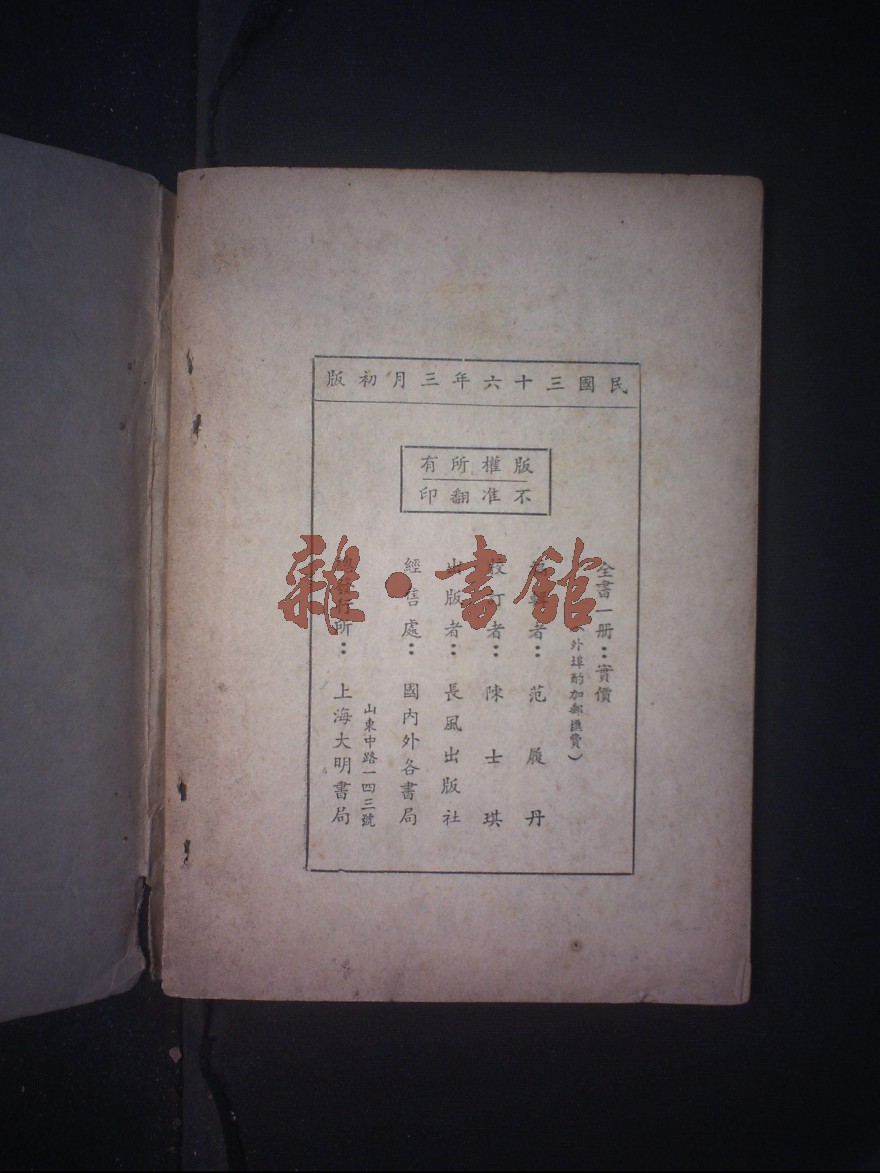 民國三十六年三月初版
版權所有
不准翻印
全書一册：實價
外埠酌加郵匯費）
者：范履丹
校訂者：陳士琪
出版者：長風出版社
經售處：國內外各書局
山東中路一四三號
發行所：上海大明書局
雜·書館